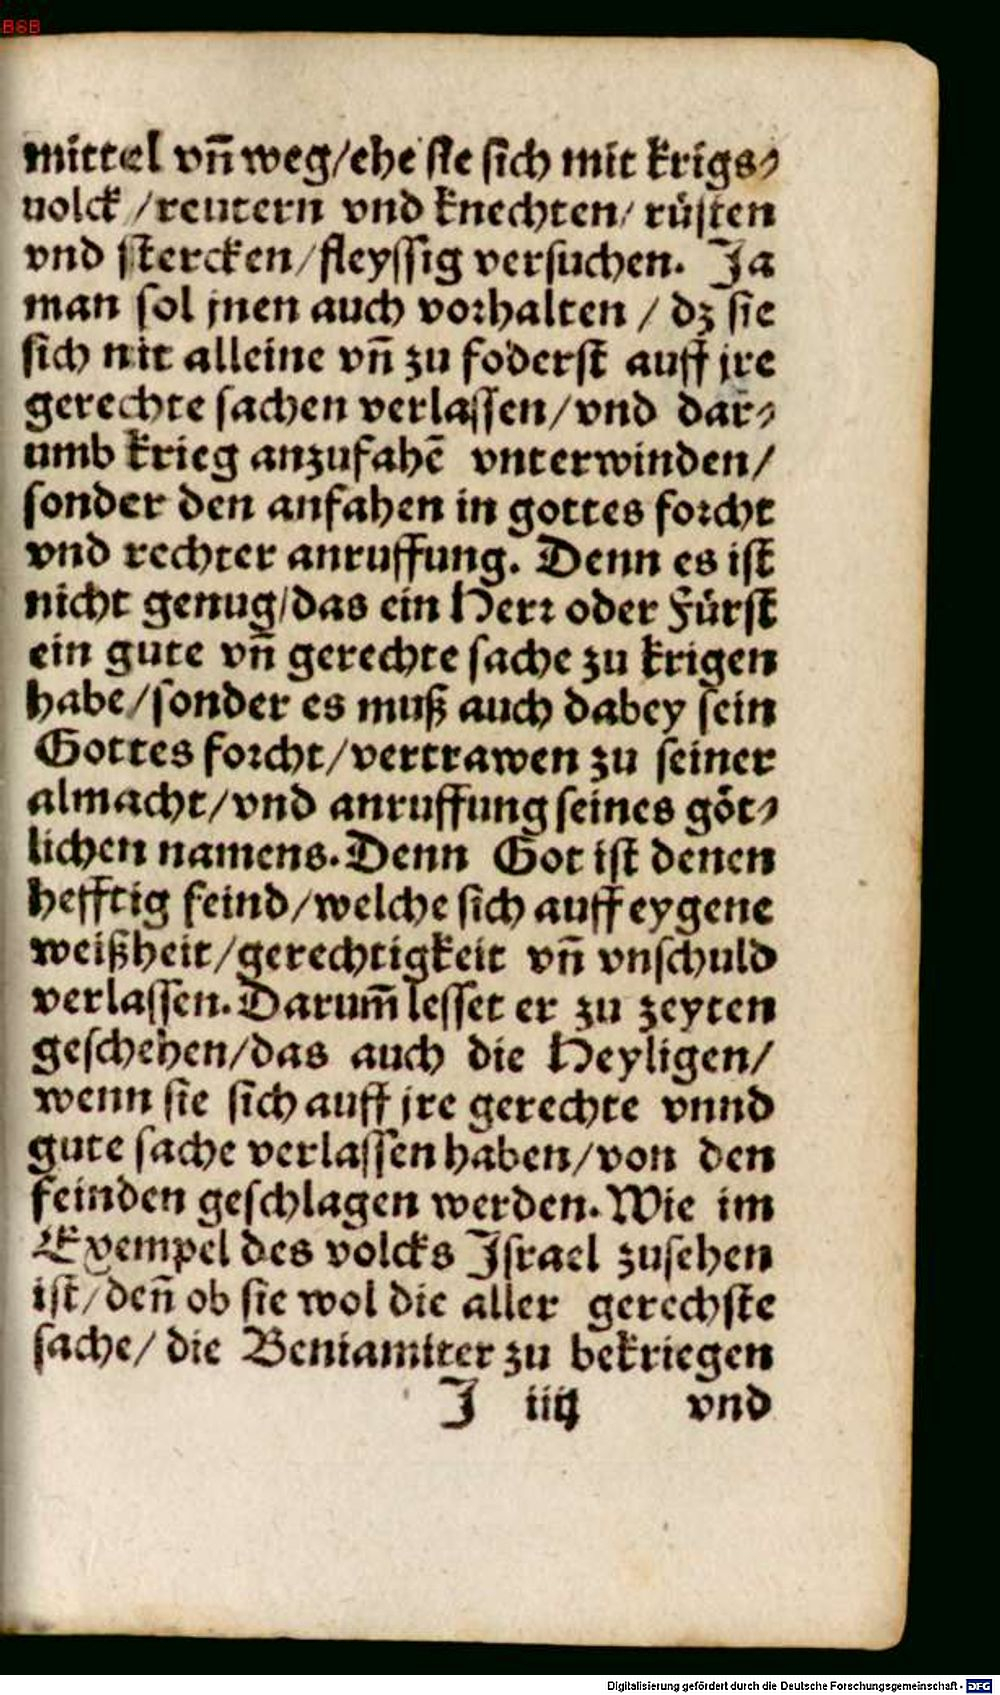 BSB
mittel vñ weg/ehe sie sich mit krigs⸗
uolck /reutern vnd knechten/ rüsten
vnd stercken/fleyssig versuchen. Ja
man sol jnen auch vorhalten / dz sie
sich nit alleine vñ zu foderst auff jre
gerechte sachen verlassen/vnd dar⸗
umb krieg anzufahē vnterwinden/
sonder den anfahen in gottes forcht
vnd rechter anruffung. Denn es ist
nicht genug/das ein Herr oder Fürst
ein gute vñ gerechte sache zu krigen
habe/sonder es muß auch dabey sein
Gottes forcht/vertrawen zu seiner
almacht/vnd anruffung seines göt⸗
lichen namens. Denn Got ist denen
hefftig feind/welche sich auff eygene
weißheit/gerechtigkeit vñ vnschuld
verlassen. Darum̄ lesset er zu zeyten
geschehen/das auch die Heyligen/
wenn sie sich auff jre gerechte vnnd
gute sache verlassen haben/von den
feinden geschlagen werden. Wie im
Exempel des volcks Israel zusehen
ist/deñ ob sie wol die aller gerechste
sache/ die Beniamiter zu bekriegen
J iiij vnd
Digitalisierung gefördert durch die Deutsche Forschungsgemeinschaft - DFG